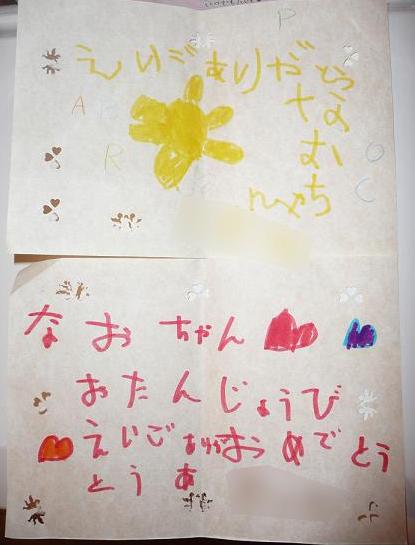 P
えいごありがとう
なお
ちゃん
A
R
O
C
なおちゃん
おたんじょうび
えいごありがおめでとう
とうあ